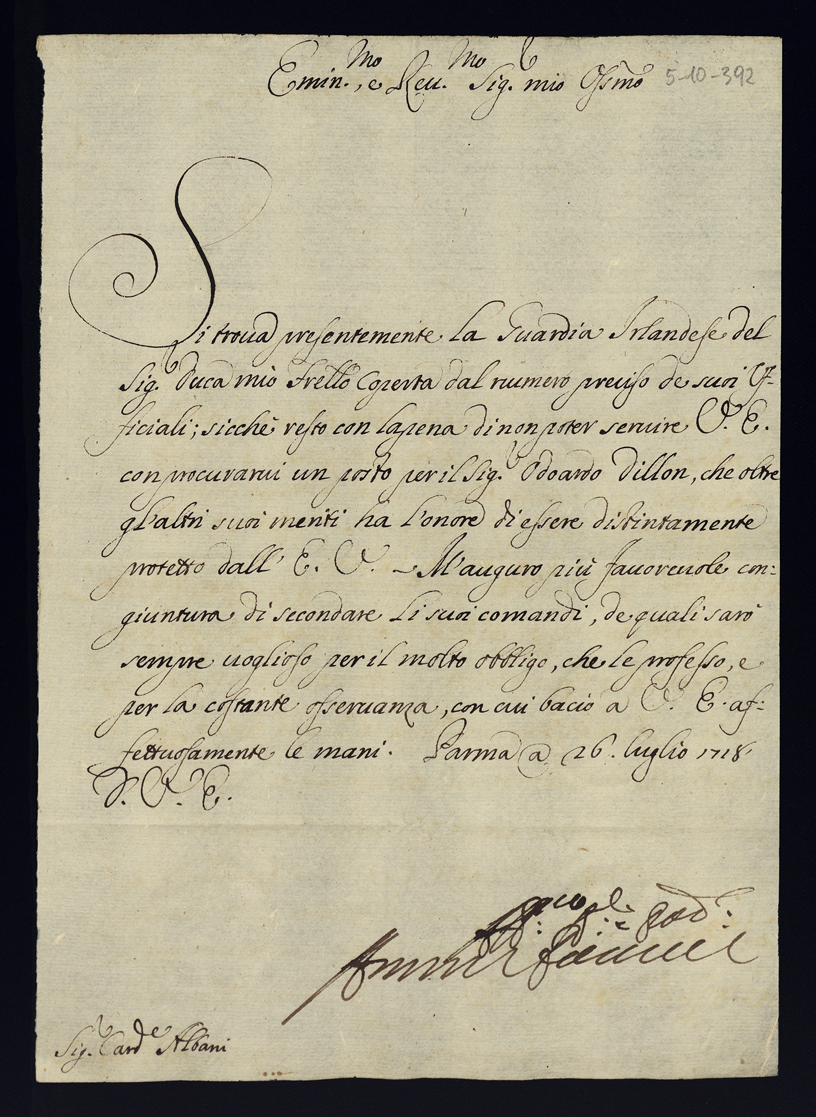 Emin.mo, e Reu.mo Sig.r mio Ossmo 5-10-392
Si troua presentemente la Guardia Irlandese del
Sig.r Duca mio Frello coperta dal numero preciso de suoi Vf-
ficiali; sicchè resto con la pena di non poter seruire V. E.
con procurarui un posto per il Sig.r Odoardo Dillon, che oltre
gl'altri suoi meriti ha l'onore di essere distintamente
protetto dall' E. V. - M'auguro più fauoreuole con=
giuntura di secondare li suoi comandi, de quali sarò
sempre uoglioso per il molto obbligo, che le professo, e
per la costante osseruanza, con cui bacio a V. E. af=
fettuosamente le mani. Parma a 26. luglio 1718
D. V. E.
Sig.r Card.e Albani